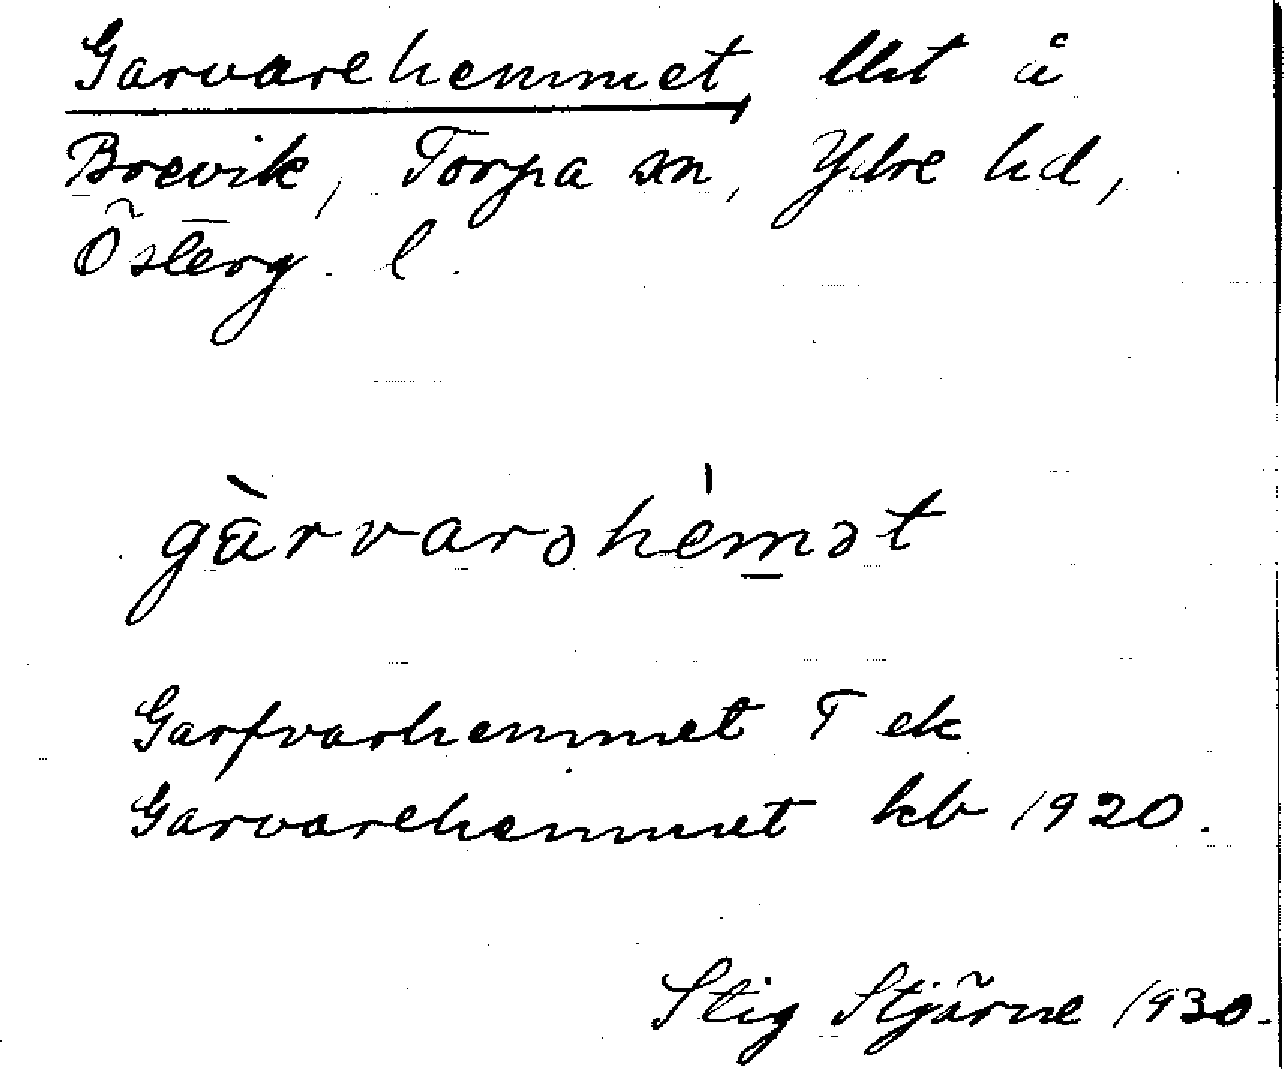 Garvarehemmet, llt å
Brevik, Torpa sn, Ydre hd,
Österg. l.
gàrvarəhèmət
Garfvarhemmet T ek
Garvarehemmet kb 1920.
Stig Stjärne 1930.